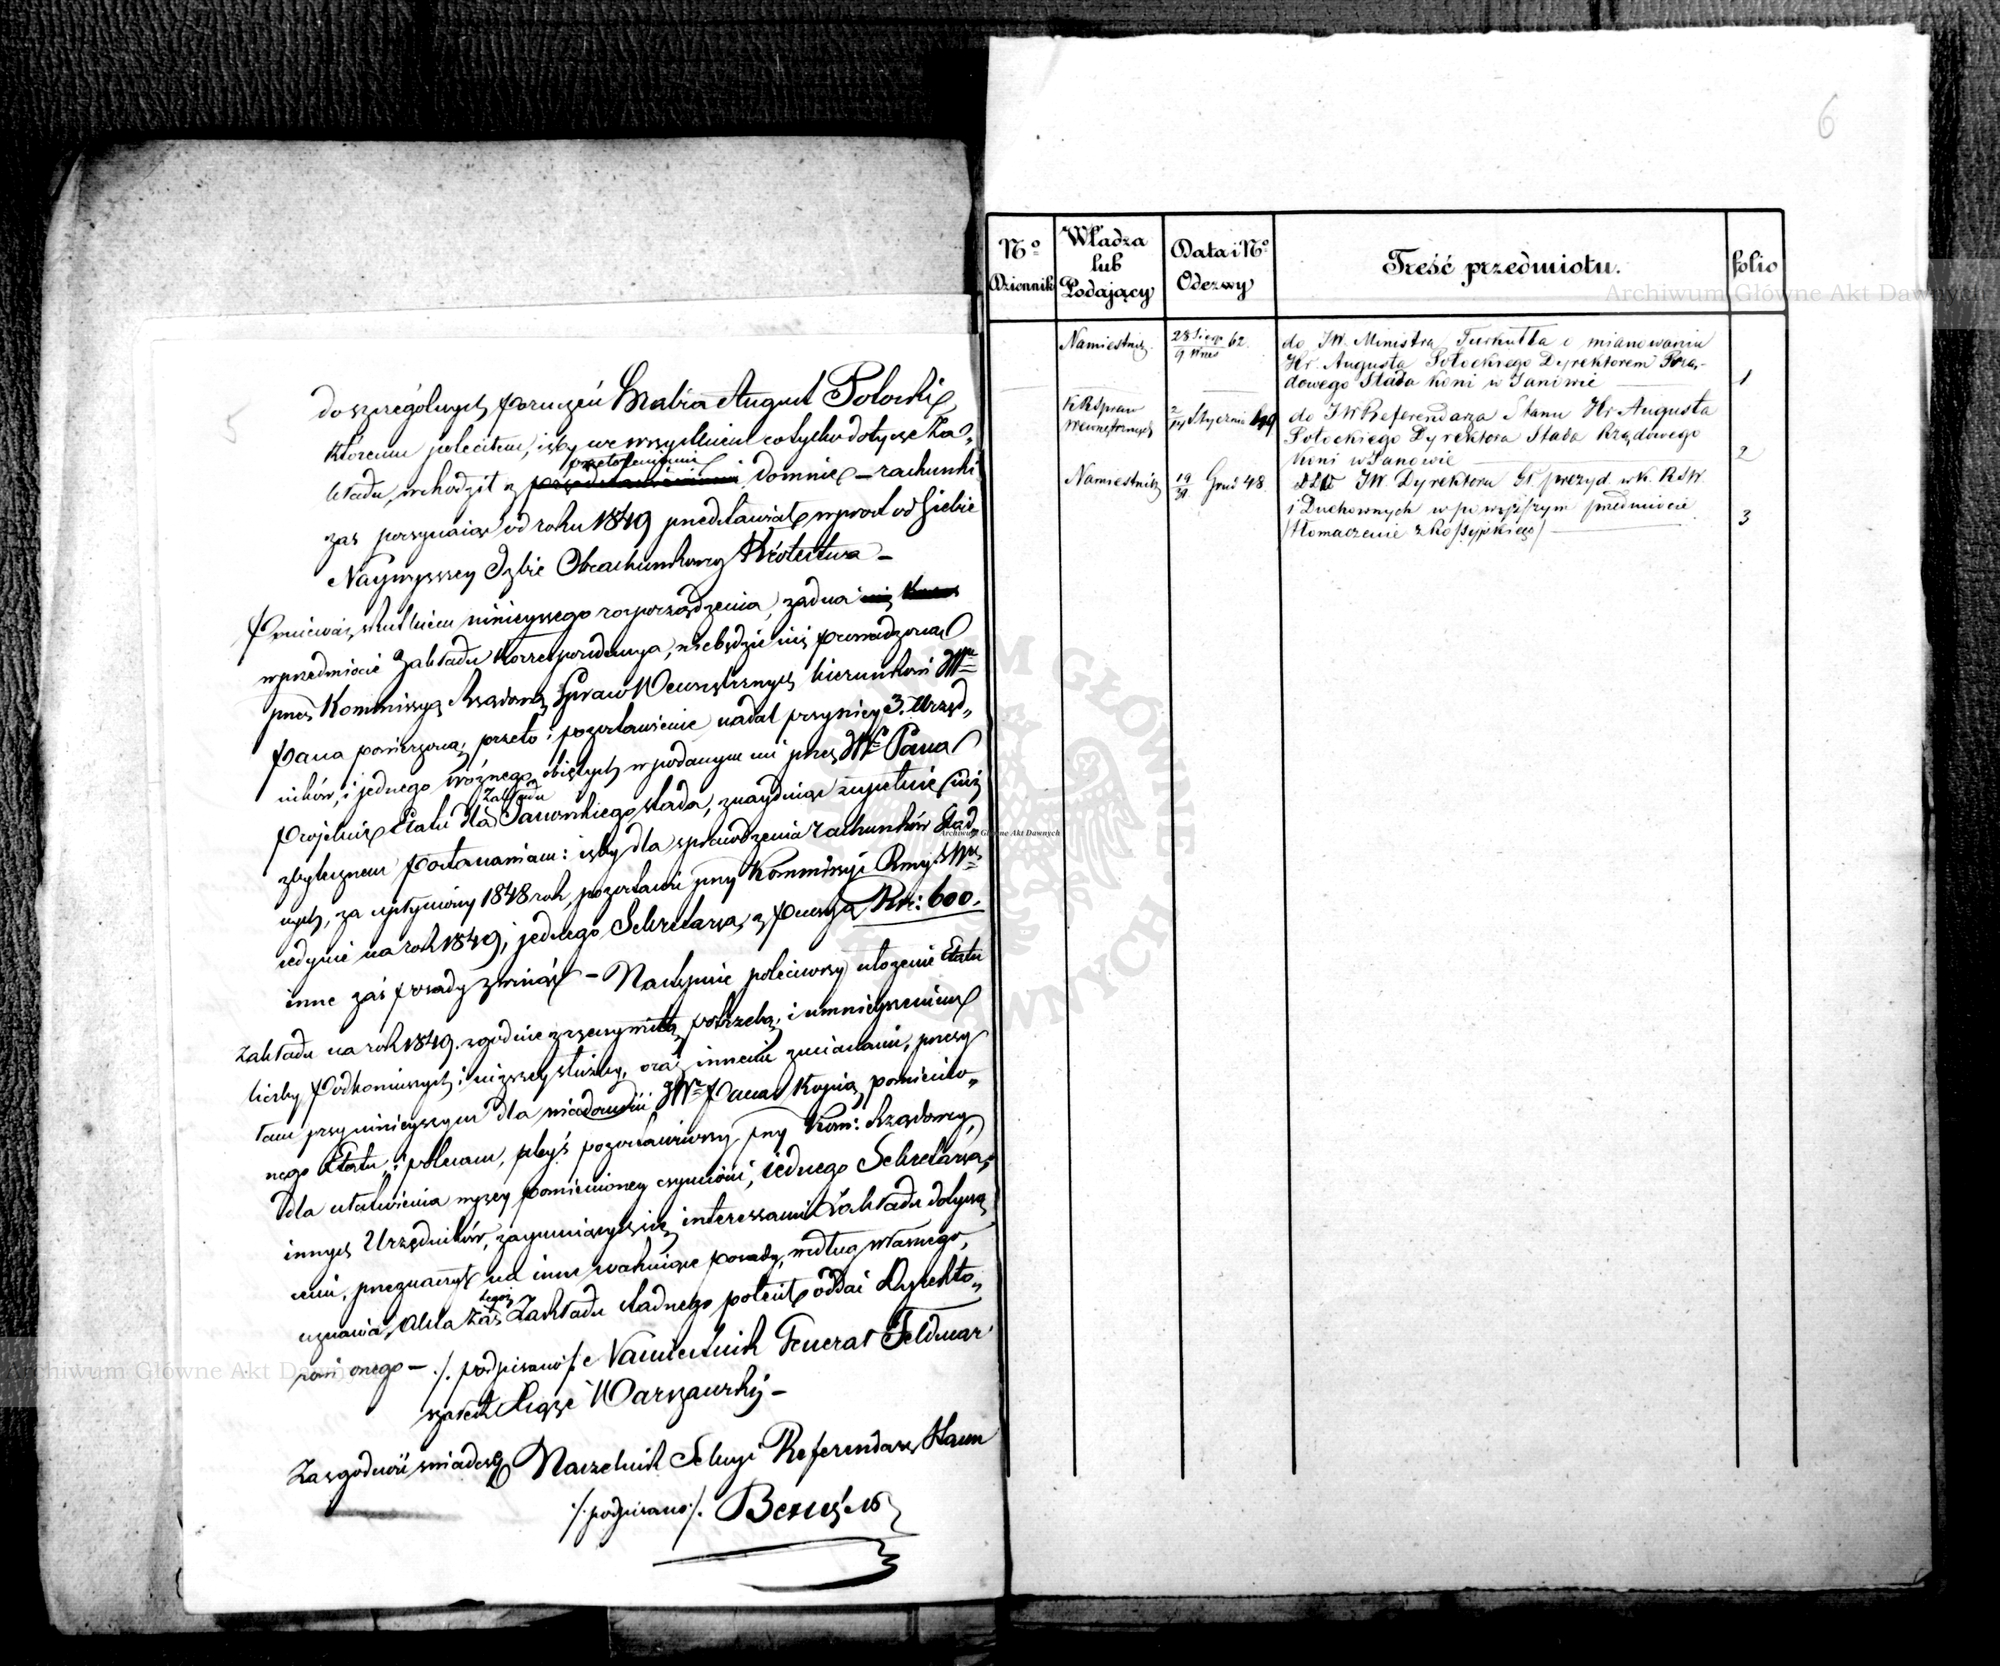 5
do szczególnych poruczeń Hrabia August Potocki,
któremu poleciłem, iżby we wszystkiem co tylko dotycze Za„
kładu, wchodził z przełożeniami do mnie – rachunki
zaś poczynając od roku 1849 przedstawiał wprost od siebie
Naywyższey Izbie Obrachunkowey Królestwa –
Ponieważ skutkiem ninieyszego rozporządzenia, żadna
w przedmiocie Zakładu Korrespondencya, niebędzie już prowadzona
przez Kommissyą Rządową Spraw Wewnętrznych kierunkowi JWo
Pana powierzoną, przeto i pozostawienie nadal przy niey 3. Urzęd„
ników, i jednego woźnego objętych w podanym mi przez JWo Pana
Projekcie Etatu dla Zakładu Janowskiego stada, znayduiąc zupełnie już
zbytecznem postanawiam: iżby dla sprawdzenia rachunków Stad„
nych, za upłyniony 1848 rok, pozostawić przy Kommissyi
jedynie na rok 1849, jednego Sekretarza, z pensyą Rsr: 600.
inne zaś posady zwinąć – Następnie poleciwszy ułożenie Etatu
Zakładu na rok 1849. zgodnie z rzeczywistą potrzebą, i umnieyszeniem
liczby Podkoniuszych i niższey służby, oraz innemi zmianami, przesy
łam przy ninieyszym dla wiadomości JWo Pana Kopią pomienio„
nego Etatu, i polecam, abyś pozostawiwszy przy Kom: Rządowey,
dla ułatwienia wyżey pomienioney czynności, jednego Sekretarza,
innych Urzędników, zaymuiących się interessami Zakładu dotyczą
cemi, przeznaczył na inne wakuiące posady, według własnego,
uznania, Akta zaś tegoż Zakładu stadnego polecił oddać Dyrekto„
rowi onego – /. podpisano /. Namiestnik Generał Feldmar
szałek Xiąże Warszawski –
Za zgodność świadczy Naczelnik Sekcyi Referendarz Stanu
/. podpisano /.
6
No Dziennik | Władza lub Podający | Data i No Odezwy | Treść przedmiotu. | folio
Namiestnik. | 28 Sierp/9 Wrześ 62. | do JW. Ministra Turkułła o mianowaniu
Hr. Augusta Potockiego Dyrektorem Rzą„
dowego Stada Koni w Janowie | 1
K R Spraw Wewnętrznych | 2/14 Stycznia 849 | do JW Referendarza Stanu Hr. Augusta
Potockiego Dyrektora Stada Rządowego
Koni w Janowie | 2
Namiestnik | 19/31 Grud 48. | do JW. Dyrektora Gł. prezyd. w K. R. S. W.
i Duchownych w powyższym przedmiocie
/tłomaczenie z Rossyjskiego/ | 3
Archiwum Główne Akt Dawnych
Archiwum Główne Akt Dawnych
Archiwum Główne Akt Dawnych